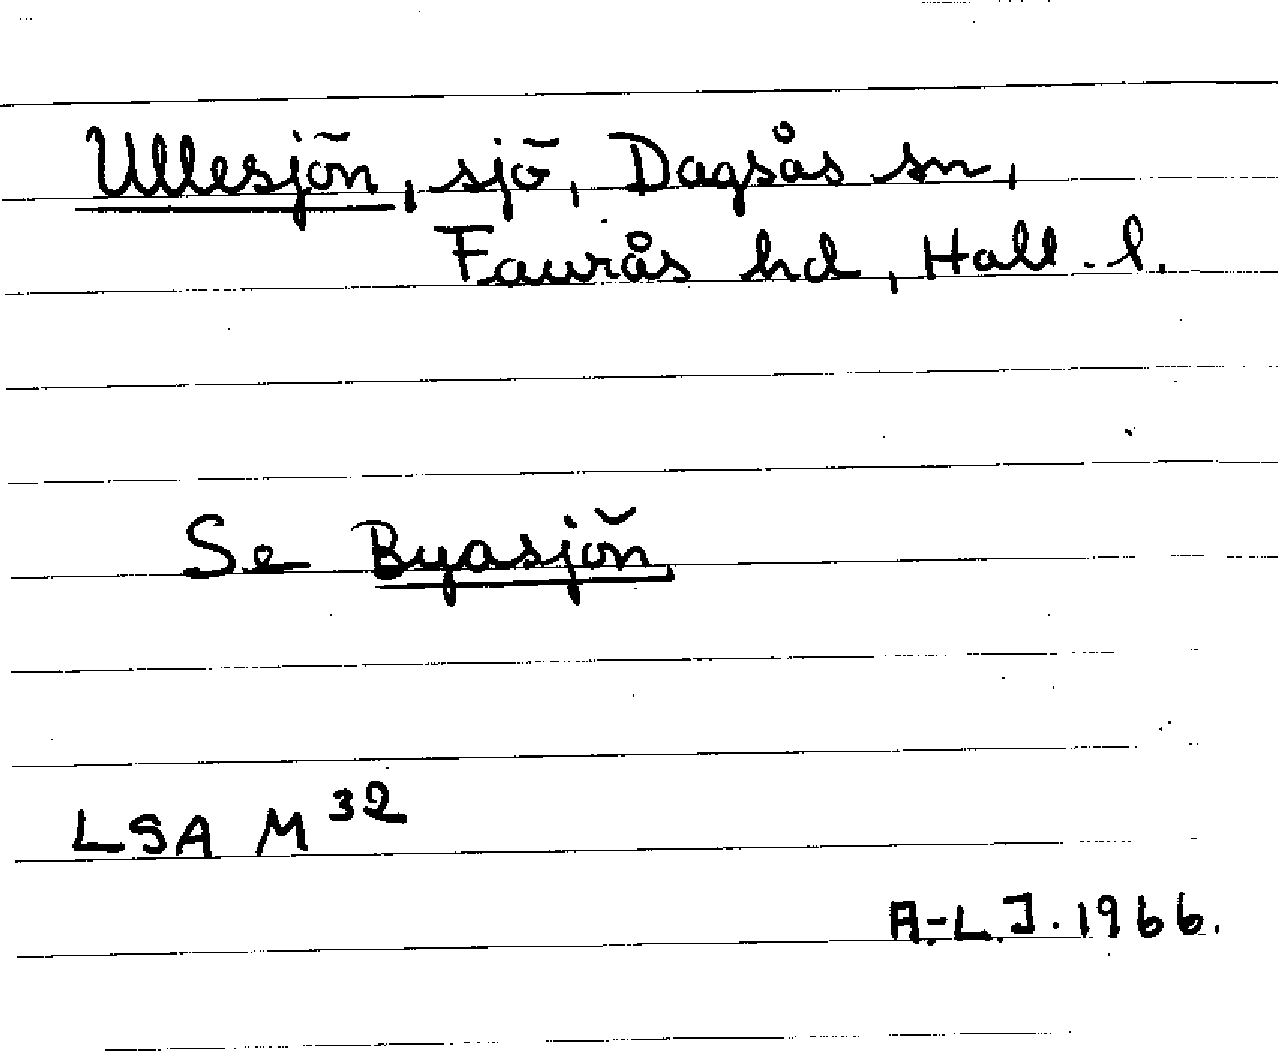 Ullesjön, sjö, Dagsås sn,
Faurås hd, Hall. l.
Se Byasjön
LSA M 32
A.-L. J. 1966.